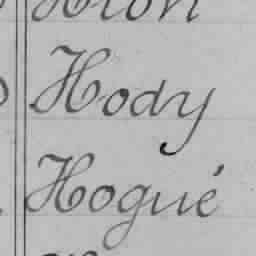 Hody
Hogué